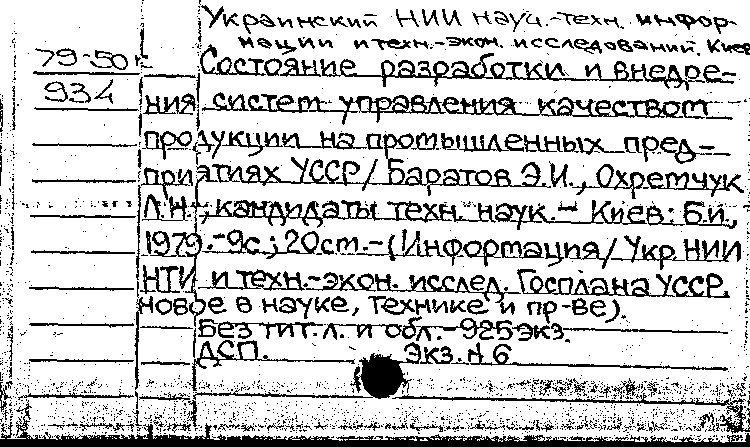 Украинский НИИ науч.-техн. инфор-
мации и техн.-экон. исследований. Киев
79-50к
Состояние разработки и внедре-
934
ния систем управления качеством
продукции на промышленных пред-
приятиях УССР/ Баратов Э.И., Охретчук
Л.Н., кандидаты техн. наук.- Киев: Б.и.,
1979.-9с.; 20см.-(Информация/ Укр НИИ
НТИ и техн.-экон. исслед. Госплана УССР.
новое в науке, технике и пр-ве).
Без тит. л. и обл.-925экз.
ДСП. Экз.№6